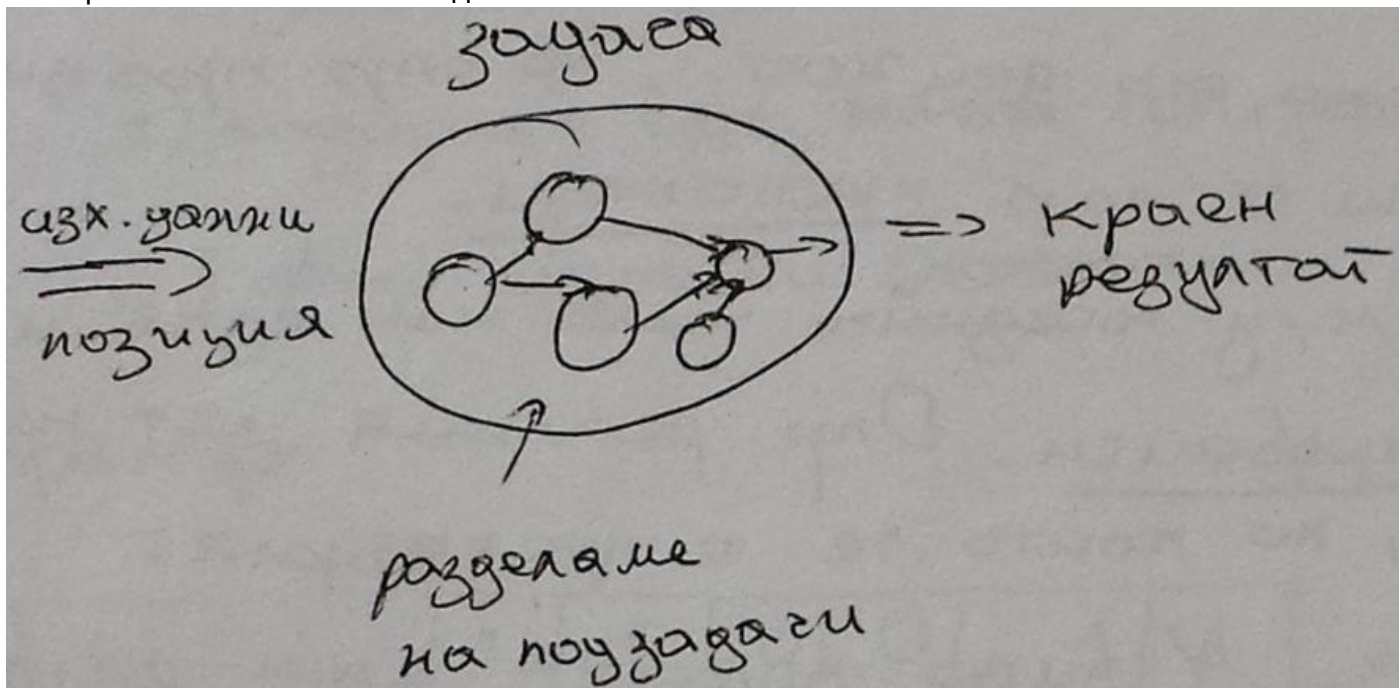 задача
изх. данни
позиция
=> краен
резултат
разделяме
на подзадачи